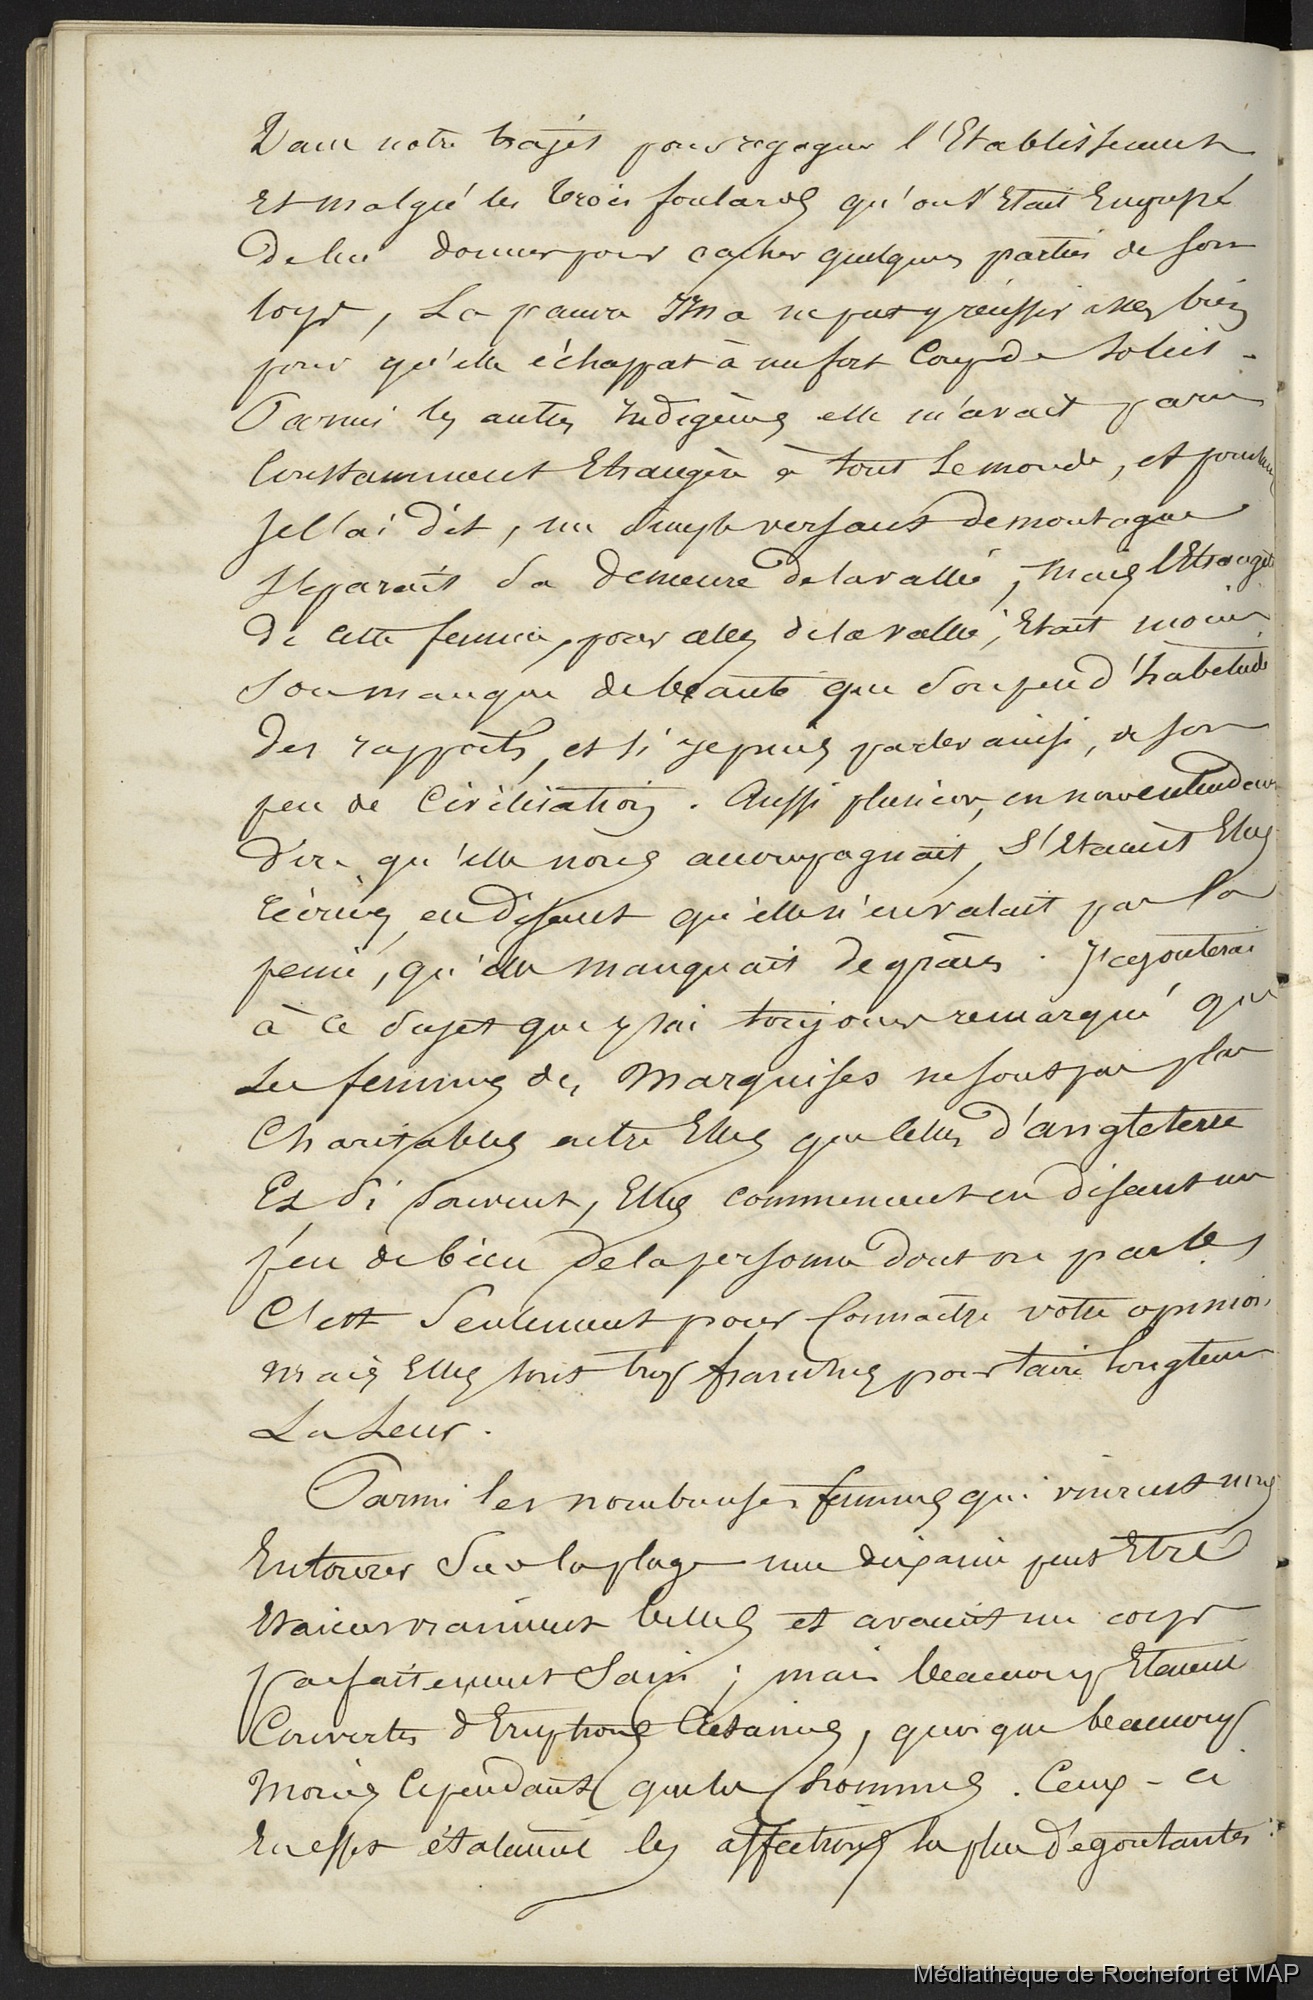 Dans notre trajet pour regagner l'Etablissement
Et malgré les trois foulards qu'on s'Etait Empressé
De lui donner pour cacher quelques parties de son
corps, La pauvre Ima ne put y réussir assez bien
pour qu'elle échappat à un fort Coup de Soleil.
Parmi les autres Indigènes elle m'avait paru
Constamment Etrangère à tout le monde, et pourtant
Je l'ai dit, un simple versant de montagne
Séparait Sa Demeure de la vallée, Mais l'Etrangeté
De cette femme, pour celles de la vallée, Etait moins
Son manque de beauté que Son peu d'habitude
Des rapports, et si je puis parler ainsi, de son
peu de Civilisation. Aussi plusieurs, en nous entendant
Dire qu'elle nous accompagnait, S'Etaient Elles
récriées en disant qu'elle n'en valait pas la
peine, qu'elle manquait de grâces. J'ajouterai
à ce Sujet que j'ai toujours remarqué que
Les femmes des Marquises ne sont pas plus
Charitables entre Elles que celles d'angleterre
Et Si Souvent, Elles commencent en disant un
peu de bien de la personne dont on parle,
C'est Seulement pour Connaître votre opinion
mais Elles sont trop franches pour taire longtems
La Leur.
Parmi les nombreuses femmes qui vinrent nous
Entourer Sur la plage une dixaine peut Etre
Etaient vraiment belles et avaient un corps
parfaitement Sain ; mais beaucoup Etaient
Couvertes d'Eruptions Cutanées, quoique beaucoup
Moins Cependant que les hommes. Ceux-ci
En effet étalaient les affections les plus Dégoutantes
Médiathèque de Rochefort et MAP